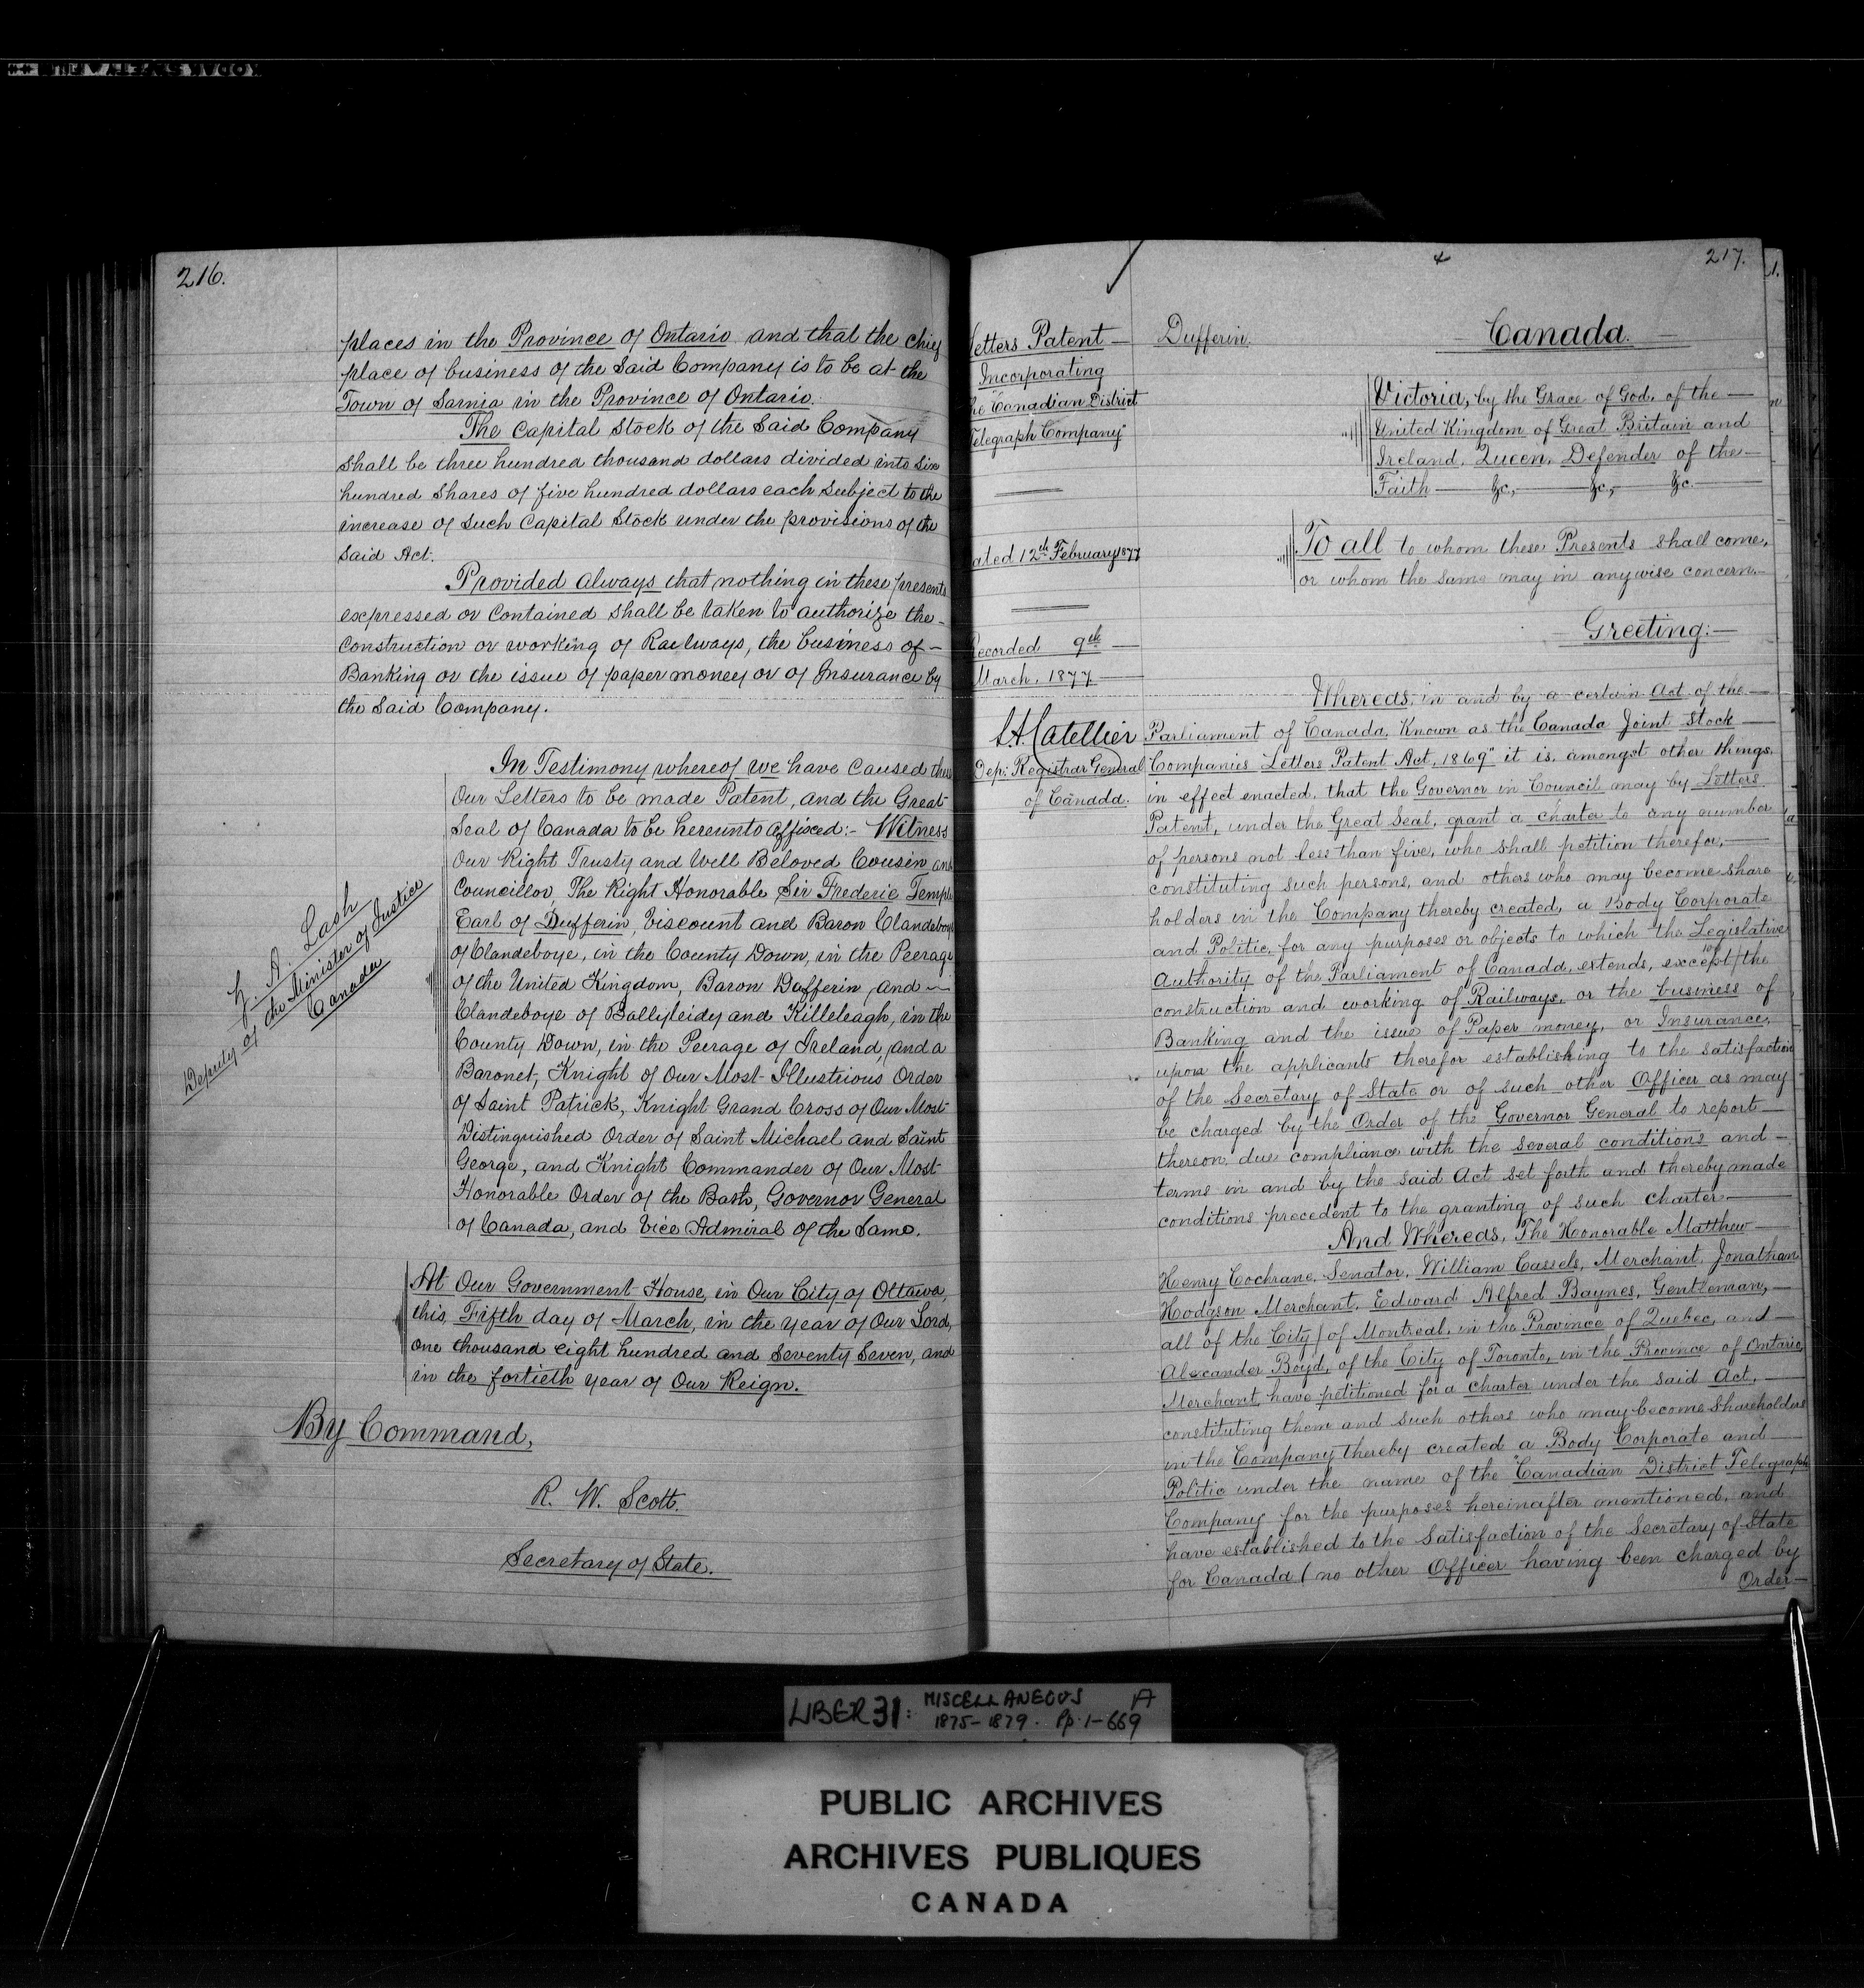 216.
places in the Province of Ontario and that the chief
place of business of the Said Company is to be at the
Town of Sarnia in the Province of Ontario.
The Capital Stock of the Said Company
shall be three hundred thousand dollars divided into Six
hundred Shares of five hundred dollars each Subject to the
increase of Such Capital Stock under the provisions of the
Said Act.
Provided Always that nothing in these presents
expressed or contained shall be taken to authorize the
construction or working of Railways, the business of
Banking or the issue of paper money or of Insurance by
the Said Company.
In Testimony whereof we have caused these
Our Letters to be made Patent, and the Great
Seal of Canada to be hereunto Affixed:- Witness
Our Right Trusty and Well Beloved Cousin and
Councillor, The Right Honorable Sir Frederic Temple
Earl of Dufferin, Viscount and Baron Clandeboye
of Clandeboye, in the County Down, in the Peerage
of the United Kingdom, Baron Dufferin and
Clandeboye of Ballyleidy and Killeleagh, in the
County Down, in the Peerage of Ireland, and a
Baronet, Knight of Our Most Illustrious Order
of Saint Patrick, Knight Grand Cross of Our Most
Distinguished Order of Saint Michael and Saint
George, and Knight Commander of Our Most
Honorable Order of the Bath, Governor General
of Canada, and Vice Admiral of the Same.
Z. A. Lash
Deputy of the Minister of Justice
Canada
At Our Government House, in Our City of Ottawa,
this, Fifth day of March, in the year of Our Lord,
one thousand eight hundred and Seventy Seven, and
in the fortieth year of Our Reign.
By Command,
R. W. Scott.
Secretary of State.
217.
Letters Patent
Incorporating
the "Canadian District
Telegraph Company"
Dated 12th February 1877
Recorded 9th
March, 1877
L. A. Catellier
Dep: Registrar General
of Canada.
Dufferin.
Canada.
Victoria, by the Grace of God, of the
United Kingdom of Great Britain and
Ireland, Queen, Defender of the
Faith &c, &c, &c.
To all to whom these Presents shall come,
or whom the same may in anywise concern.
Greeting:
Whereas, in and by a certain Act of the
Parliament of Canada, Known as the "Canada Joint Stock
Companies Letters Patent Act, 1869" it is, amongst other things,
in effect enacted, that the Governor in Council may by Letters
Patent, under the Great Seal, grant a charter to any number
of persons not less than five, who shall petition therefor,
constituting such persons, and others who may become share
holders in the Company thereby created, a Body Corporate
and Politic, for any purposes or objects to which the Legislative
Authority of the Parliament of Canada, extends, except for the
construction and working of Railways, or the business of
Banking and the issue of Paper money, or Insurance,
upon the applicants therefor establishing to the satisfaction
of the Secretary of State or of such other Officer as may
be charged by the Order of the Governor General to report
thereon, due compliance with the several conditions and
terms in and by the said Act set forth and thereby made
conditions precedent to the granting of such charter.
And Whereas, The Honorable Matthew
Henry Cochrane, Senator, William Cassels, Merchant, Jonathan
Hodgson Merchant, Edward Alfred Baynes, Gentleman,
all of the City of Montreal, in the Province of Quebec, and
Alexander Boyd, of the City of Toronto, in the Province of Ontario,
Merchant, have petitioned for a charter under the said Act,
constituting them and such others who may become Shareholders
in the Company thereby created a Body Corporate and
Politic under the name of the "Canadian District Telegraph
Company for the purposes hereinafter mentioned, and
have established to the satisfaction of the Secretary of State
for Canada (no other Officer having been charged by
Order
LIBER 31: MISCELLANEOUS A
1875-1879. Pp. 1-669
PUBLIC ARCHIVES
ARCHIVES PUBLIQUES
CANADA